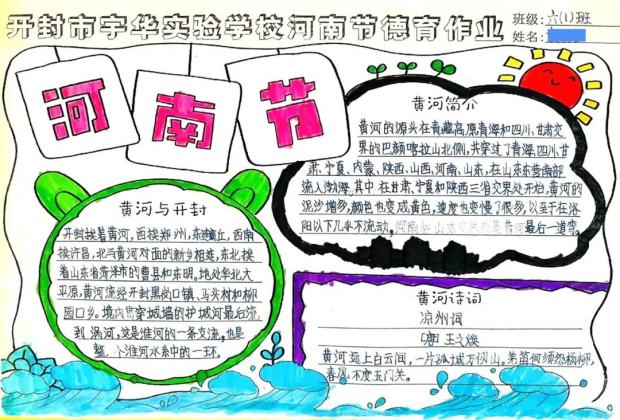 开封市宇华实验学校河南节德育作业
班级:六(1)班
姓名:
河南节
黄河简介
黄河的源头在青藏高原青海和四川、甘肃交
界的巴颜喀拉山北侧,共穿过了青海、四川、甘
肃、宁夏、内蒙、陕西、山西、河南、山东,在山东东营南部
流入渤海,其中在甘肃、宁夏和陕西三省交界处开始,黄河的
泥沙增多,颜色也变成黄色,速度也变慢了很多,以至于在洛
阳以下几乎不流动。河南和山东交界处是黄河最后一道弯。
黄河与开封
开封挨着黄河,西接郑州,东商丘,西南
接许昌,北与黄河对面的新乡相连,东北挨
着山东省菏泽市的曹县和东明,地处华北大
平原,黄河流经开封黑岗口镇、马头村和柳
园口乡。境内贯穿城墙的护城河最后流
到涡河,这是淮河的一条支流,也是
整个淮河水系中的一环。
黄河诗词
凉州词
[唐]王之焕
黄河远上白云间,一片孤城万仞山。羌笛何须怨杨柳,
春风不度玉门关。